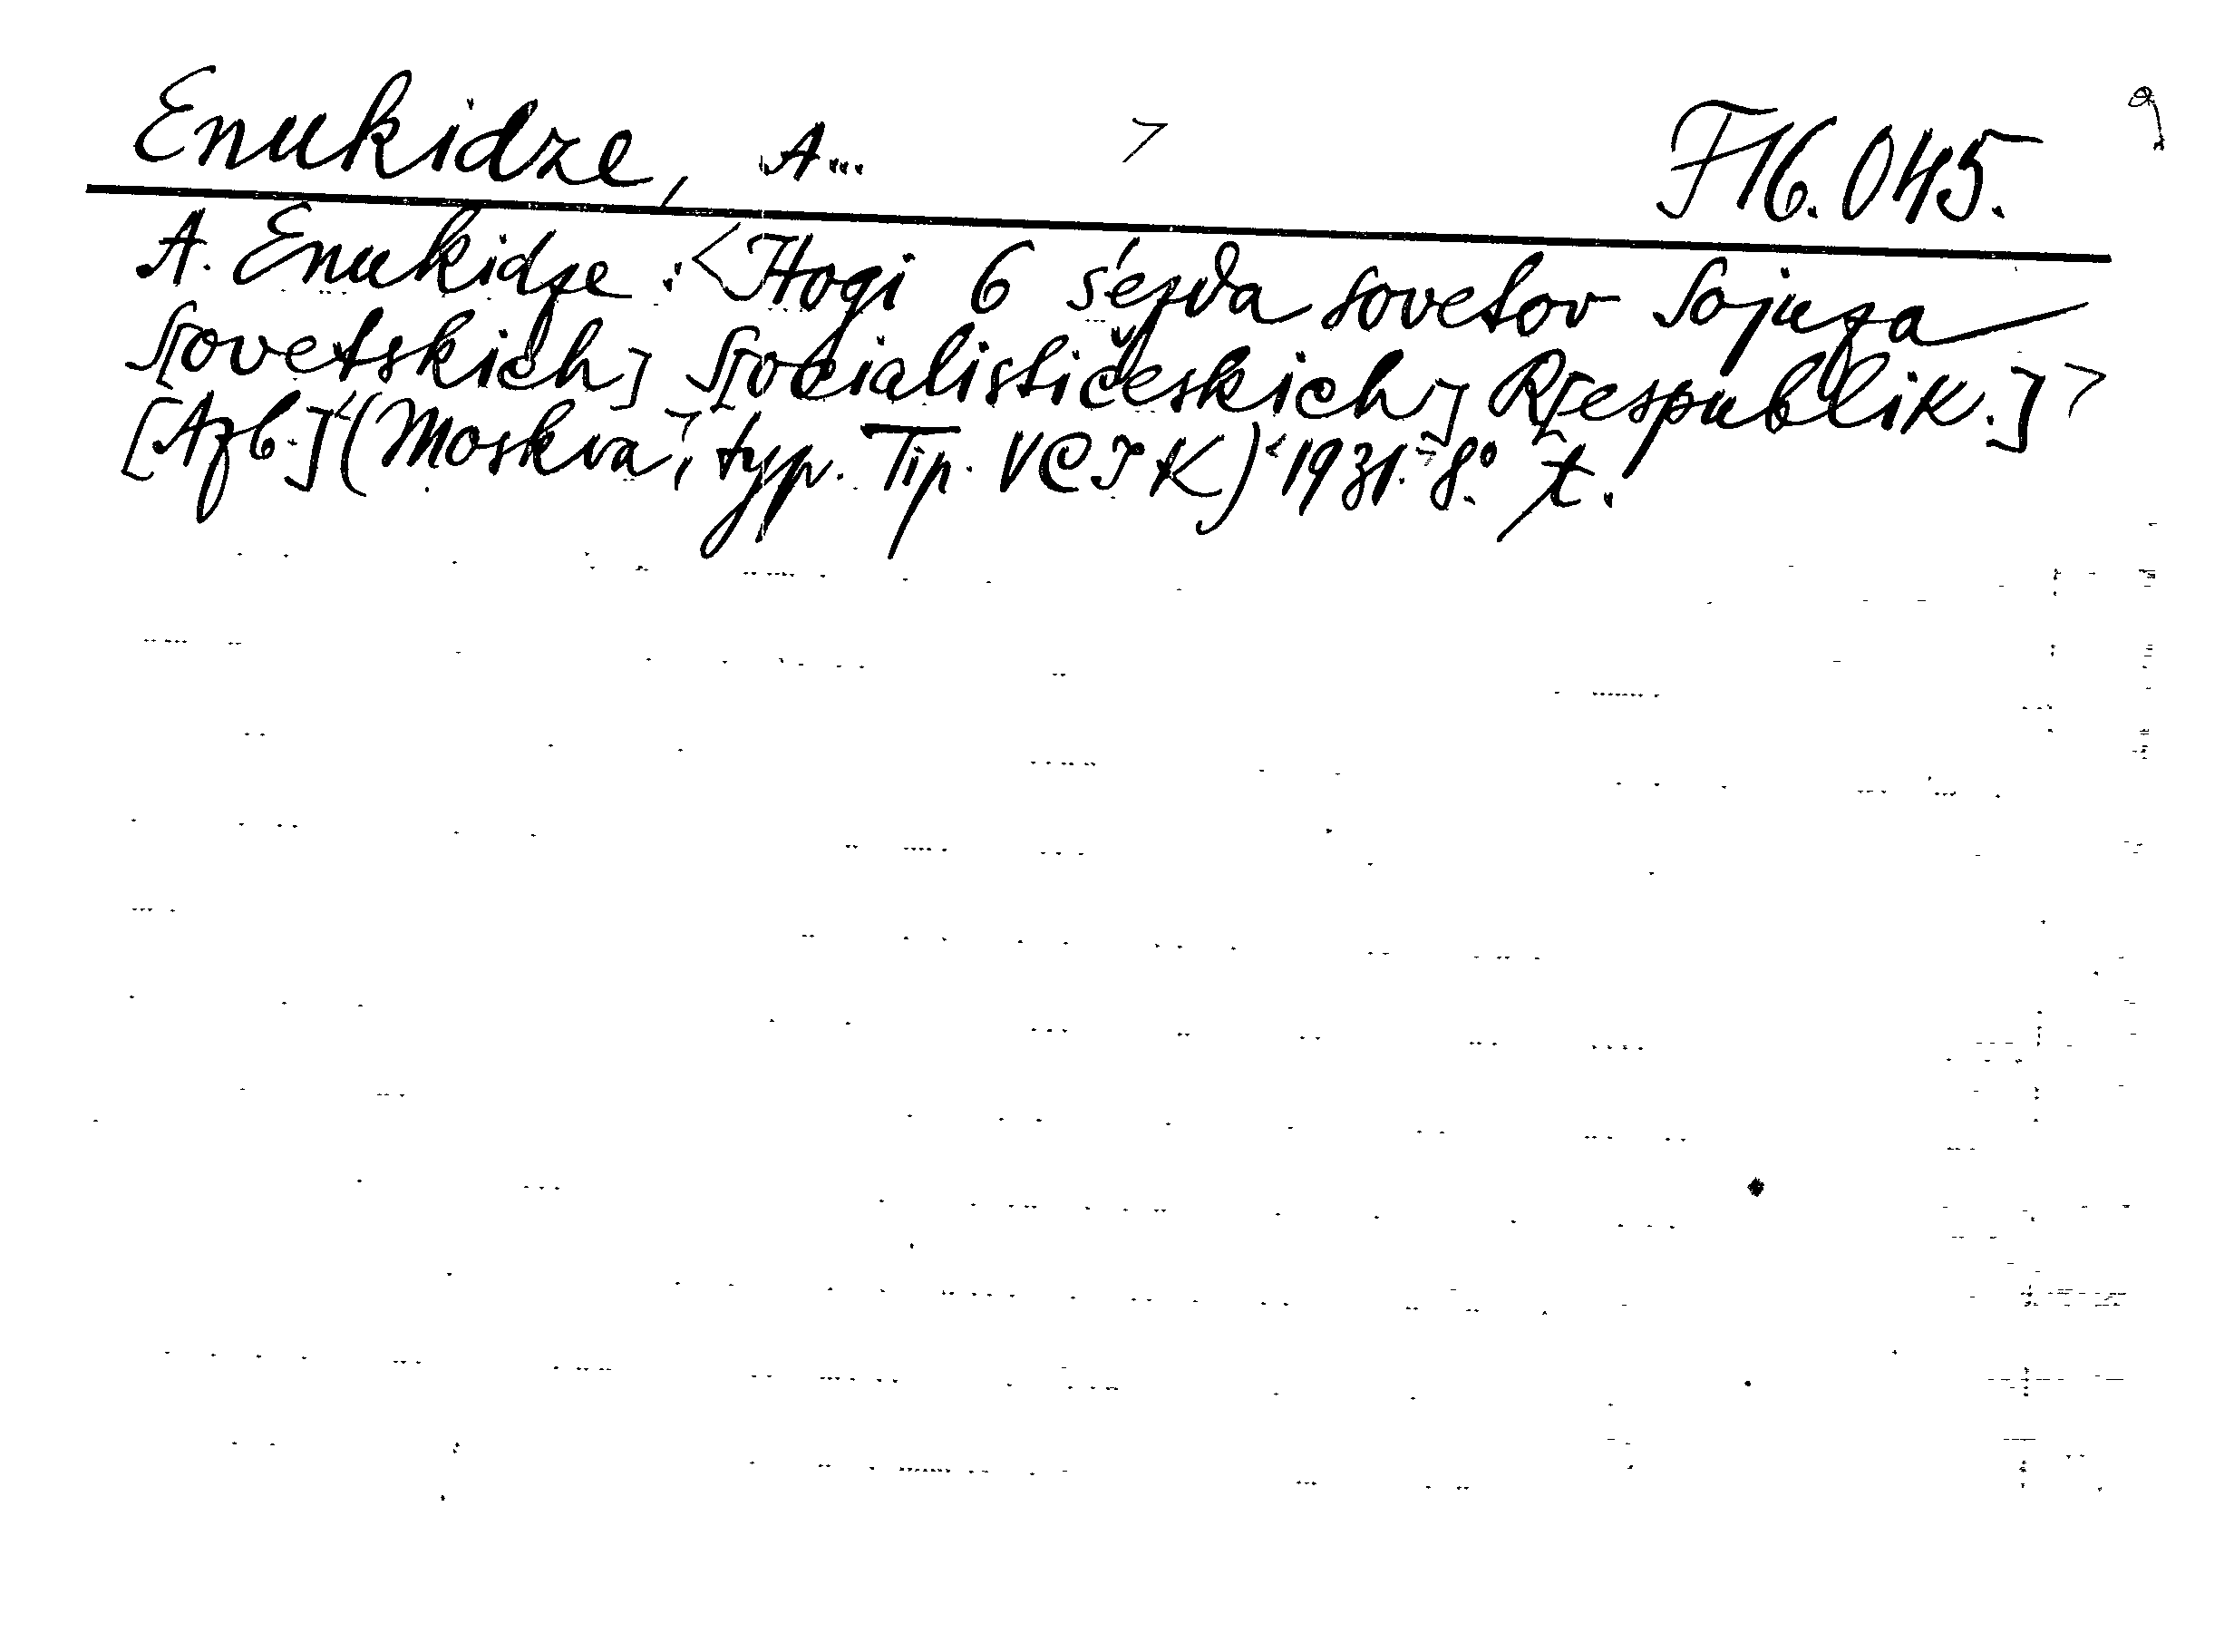 Enukidze, A... > F 16.045.
A. Enukidze: <Itogi 6 s'ezda sovetov Sojuza
S[ovetskich] S[ocialističeskich] R[espublik.]>
[Azb.] (Moskva, typ. Tip. VCIK) 1931. 8° t.